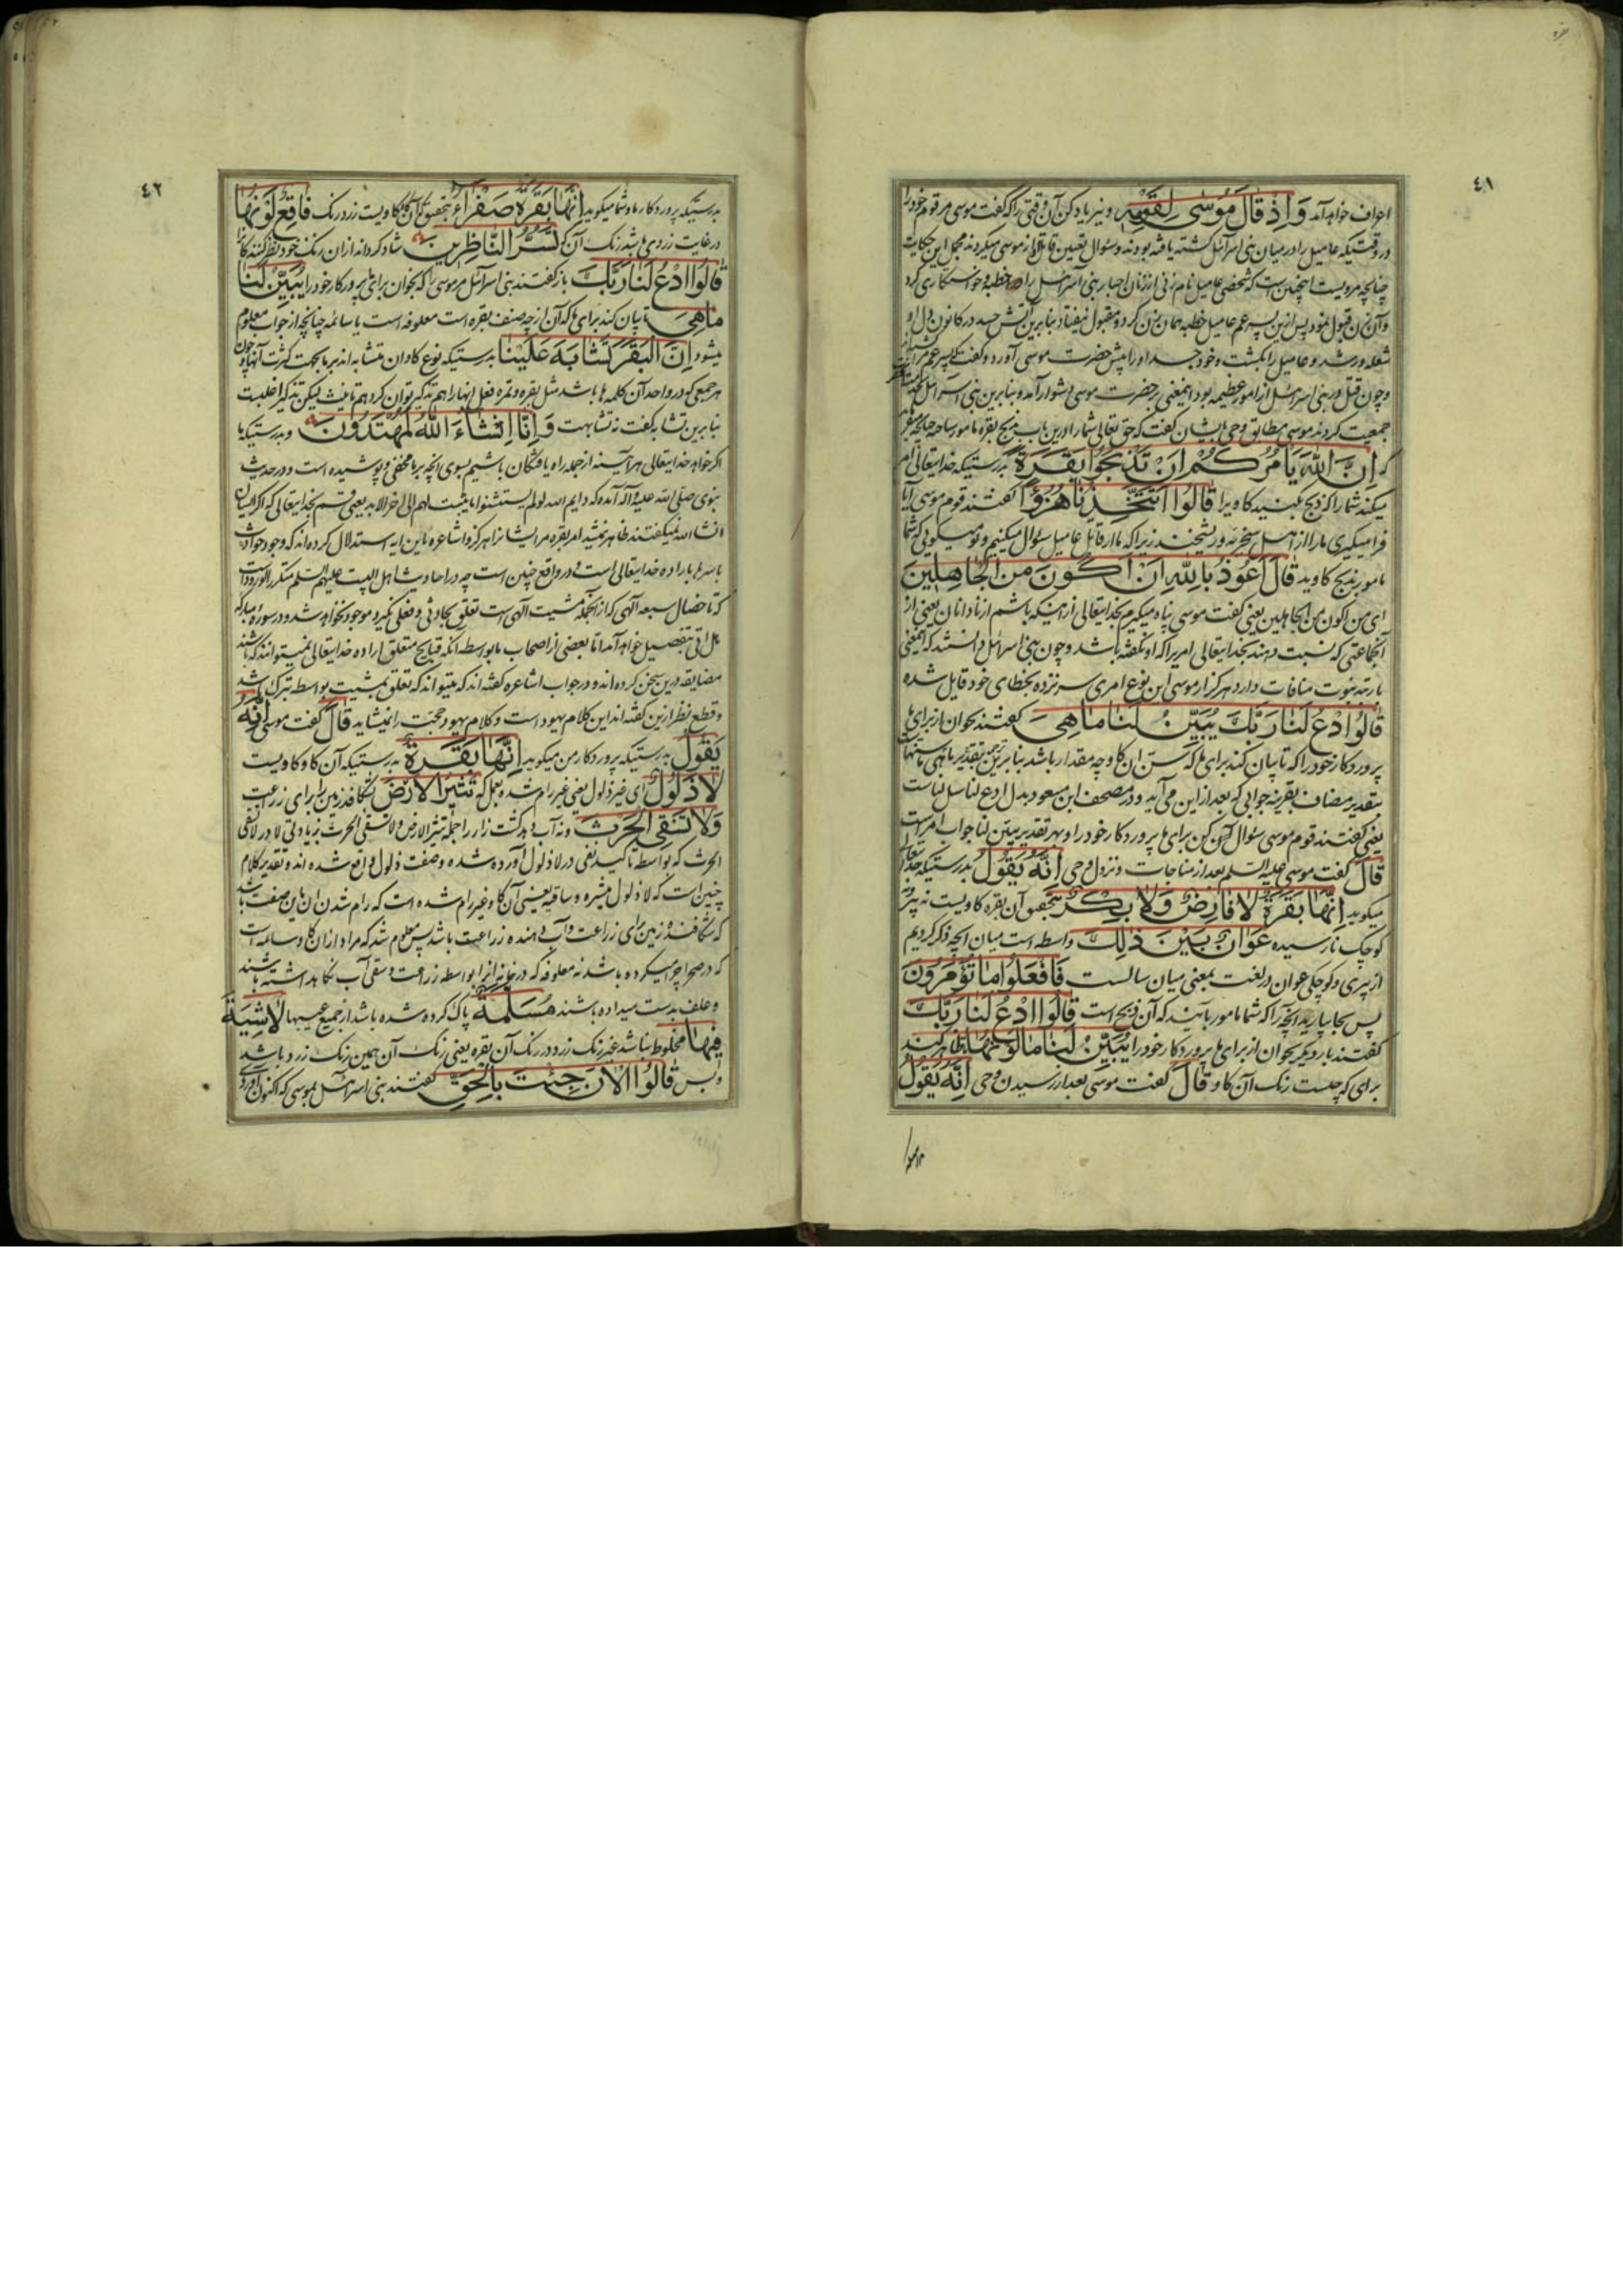 ٤١
اعراف خواهد آمد وَاِذ قَالَ مُوسٰی لِقَومِهِ و نیز یاد کن آن وقتی را که گفت موسی مر قوم خود را
در وقتیکه عامیل را در میان بنی اسرائیل کشته یافته بودند و سؤال تعیین قاتل از موسی میکردند مجمل این حکایت
چنانچه مرویست اینچنین است که شخصی عامیل نام زنی از زنان احبار بنی اسرائیل را خطبه و خواستکاری کرد
و آن زن قبول نمود پس ازین پسر عم عامیل خطبه همان زن کرد و مقبول نیفتاد بنا برین آتش حسد در کانون دل او
شعله ور شد و عامیل را بکشت و خود جسد او را پیش حضرت موسی آورد و گفت که پسر عم مرا
و چون قتل در بنی اسرائیل از امور عظیمه بود اینمعنی بر حضرت موسی دشوار آمد و بنا برین بنی اسرائیل
جمعیت کردند موسی مطابق وحی بایشان گفت که حق تعالی شما را درین باب بذبح بقره مامور ساخته چنانچه
که اِنَّ اللّٰهَ یَأمُرُکُم اَن تَذبَحُوا بَقَرَةً بدرستیکه خدایتعالی امر
میکند شما را که ذبح بکنید کاویرا قَالُوا اَتَتَّخِذُنَا هُزُوًا گفتند قوم موسی آیا
فرا میکیری ما را از اهل سخریه و ریشخند زیرا که ما از قاتل عامیل سؤال میکنیم و تو میکوئی که شما
مامور بذبح کاوید قَالَ اَعُوذُ بِاللّٰهِ اَن اَکُونَ مِنَ الجَاهِلِینَ
ای من اکون من الجاهلین یعنی گفت موسی پناه میکیرم بخدایتعالی از اینکه باشم از نادانان یعنی از
آنجماعتی که نسبت دهند بخدایتعالی امریرا که او نکفته باشد و چون بنی اسرائیل دانستند که اینمعنی
بارتبه نبوت منافات دارد هرکز از موسی این نوع امری سر نزده بخطای خود قایل شده
قَالُوا ادعُ لَنَا رَبَّكَ یُبَیِّن لَنَا مَا هِیَ گفتند بخوان از برای ما
پروردکار خود را که تا بیان کند برای ما که سن ان کاو چه مقدار باشد بنا برین بتقدیر ما هی ما سنها
بتقدیر مضاف بقرینه جوابی که بعد ازین می آید و در مصحف ابن مسعود بدل ادع لنا سل لناست
یعنی گفتند قوم موسی سؤال کن برای ما پروردکار خود را و بهر تقدیر یبین لنا جواب امرست
قَالَ گفت موسی علیه السلم بعد از مناجات و نزول وحی اِنَّهُ یَقُولُ بدرستیکه خدایتعالی
میکوید اِنَّهَا بَقَرَةٌ لَا فَارِضٌ وَلَا بِکرٌ بتحقیق آن بقره کاویست نه پیر و نه
کوچک نارسیده عَوَانٌ بَینَ ذٰلِكَ واسطه است میان انچه ذکر کردیم
از پیری و کوچکی عوان در لغت بمعنی میان سالست فَافعَلُوا مَا تُؤمَرُونَ
پس بجا بیارید انچه را که شما مامور بآنید که آن ذبح است قَالُوا ادعُ لَنَا رَبَّكَ
گفتند بار دیکر بخوان از برای ما پروردکار خود را یُبَیِّن لَنَا مَا لَونُهَا تا ظاهر کند
برای ما که چیست رنک آن کاو قَالَ گفت موسی بعد از رسیدن وحی اِنَّهُ یَقُولُ
٤٢
بدرستیکه پروردکار ما و شما میکوید اِنَّهَا بَقَرَةٌ صَفرَاءُ بتحقیق که آن کاو کاویست زرد رنک فَاقِعٌ لَونُهَا
در غایت زردی باشد رنک آن که تَسُرُّ النَّاظِرِینَ شاد کرداند از ان رنک خود نظر کنندکانرا
قَالُوا ادعُ لَنَا رَبَّكَ باز گفتند بنی اسرائیل مر موسی را که بخوان برای ما پروردکار خود را یُبَیِّن لَنَا
مَا هِیَ بیان کند برای ما که آن از چه صنف بقره است معلوفه است یا سائمه چنانچه از جواب معلوم
میشود اِنَّ البَقَرَ تَشَابَهَ عَلَینَا بدرستیکه نوع کاوان متشابه اند بر ما بجهت کثرت آنها و چون
هر جمعی که در واحد آن کلمه ها باشد مثل بقره و تمره فعل انها را هم تذکیر توان کرد هم تانیث لیکن تذکیر اغلبست
بنا برین تشابه گفت نه تشابهت وَاِنَّا اِنشَاءَ اللّٰهُ لَمُهتَدُونَ و بدرستیکه ما
اکر خواهد خدایتعالی هرآینه از جمله راه یافتکان باشیم بسوی انچه بر ما مخفی و پوشیده است و در حدیث
نبوی صلی الله علیه و آله آمده که و ایم الله لو لم یستثنوا ما بینت لهم الی اخر الابد یعنی قسم بخدایتعالی که اکر ایشان
انشاء الله نمیکفتند ظاهر نمیشد امر بقره مر ایشانرا هرکز و اشاعره باین ایه استدلال کرده اند که وجود حوادث
باسرها باراده خدایتعالی است و در واقع چنین است چه در احادیث اهل البیت علیهم السلم متکرر الورود است
که تا خصال سبعه آلهی که از انجمله مشیت آلهی است تعلق بحادثی و فعلی نکیرد موجود نخواهد شد و در سوره مبارکه
هل اتی بتفصیل خواهد آمد اما بعضی از اصحاب ما بواسطه انکه قبایح متعلق اراده خدایتعالی نمیتوانند که باشند
مضایقه درین سخن کرده اند و در جواب اشاعره گفته اند که میتواند که تعلق بمشیت بواسطه تبرک باشد
و قطع نظر ازین گفته اند این کلام یهود است و کلام یهود حجیت را نمیشاید قَالَ گفت موسی اِنَّهُ
یَقُولُ بدرستیکه پروردکار من میکوید اِنَّهَا بَقَرَةٌ بدرستیکه آن کاو کاویست
لَا ذَلُولٌ ای غیر ذلول یعنی غیر رام شده بعمل که تُثِیرُ الاَرضَ بشکافد زمین را برای زراعت
وَلَا تَسقِی الحَرثَ و نه آب دهد کشت زار را جمله تثیر الارض و لا تسقی الحرث بزیادتی لا در لا تسقی
الحرث که بواسطه تاکید نفی در لا ذلول آورده شده و صفت ذلول واقع شده اند و تقدیر کلام
چنین است که لا ذلول مثیره و ساقیه یعنی آن کاو غیر رام شده است که رام شدن ان باین صفت باشد
که شکافنده زمین برای زراعت و آب دهنده زراعت باشد پس معلوم شد که مراد ازان کاو سائمه است
که در صحرا چرا میکرده باشد نه معلوفه که در خانه انرا بواسطه زراعت و سقی آب نکاهداشته باشند
و علف بدست میداده باشند مُسَلَّمَةٌ پاک کرده شده باشد از جمیع عیبها لَا شِیَةَ
فِیهَا مخلوط نباشد غیر رنک زرد در رنک آن بقره یعنی رنک آن همین رنک زرد باشد
و بس قَالُوا الاٰنَ جِئتَ بِالحَقِّ گفتند بنی اسرائیل بموسی که اکنون آوردی